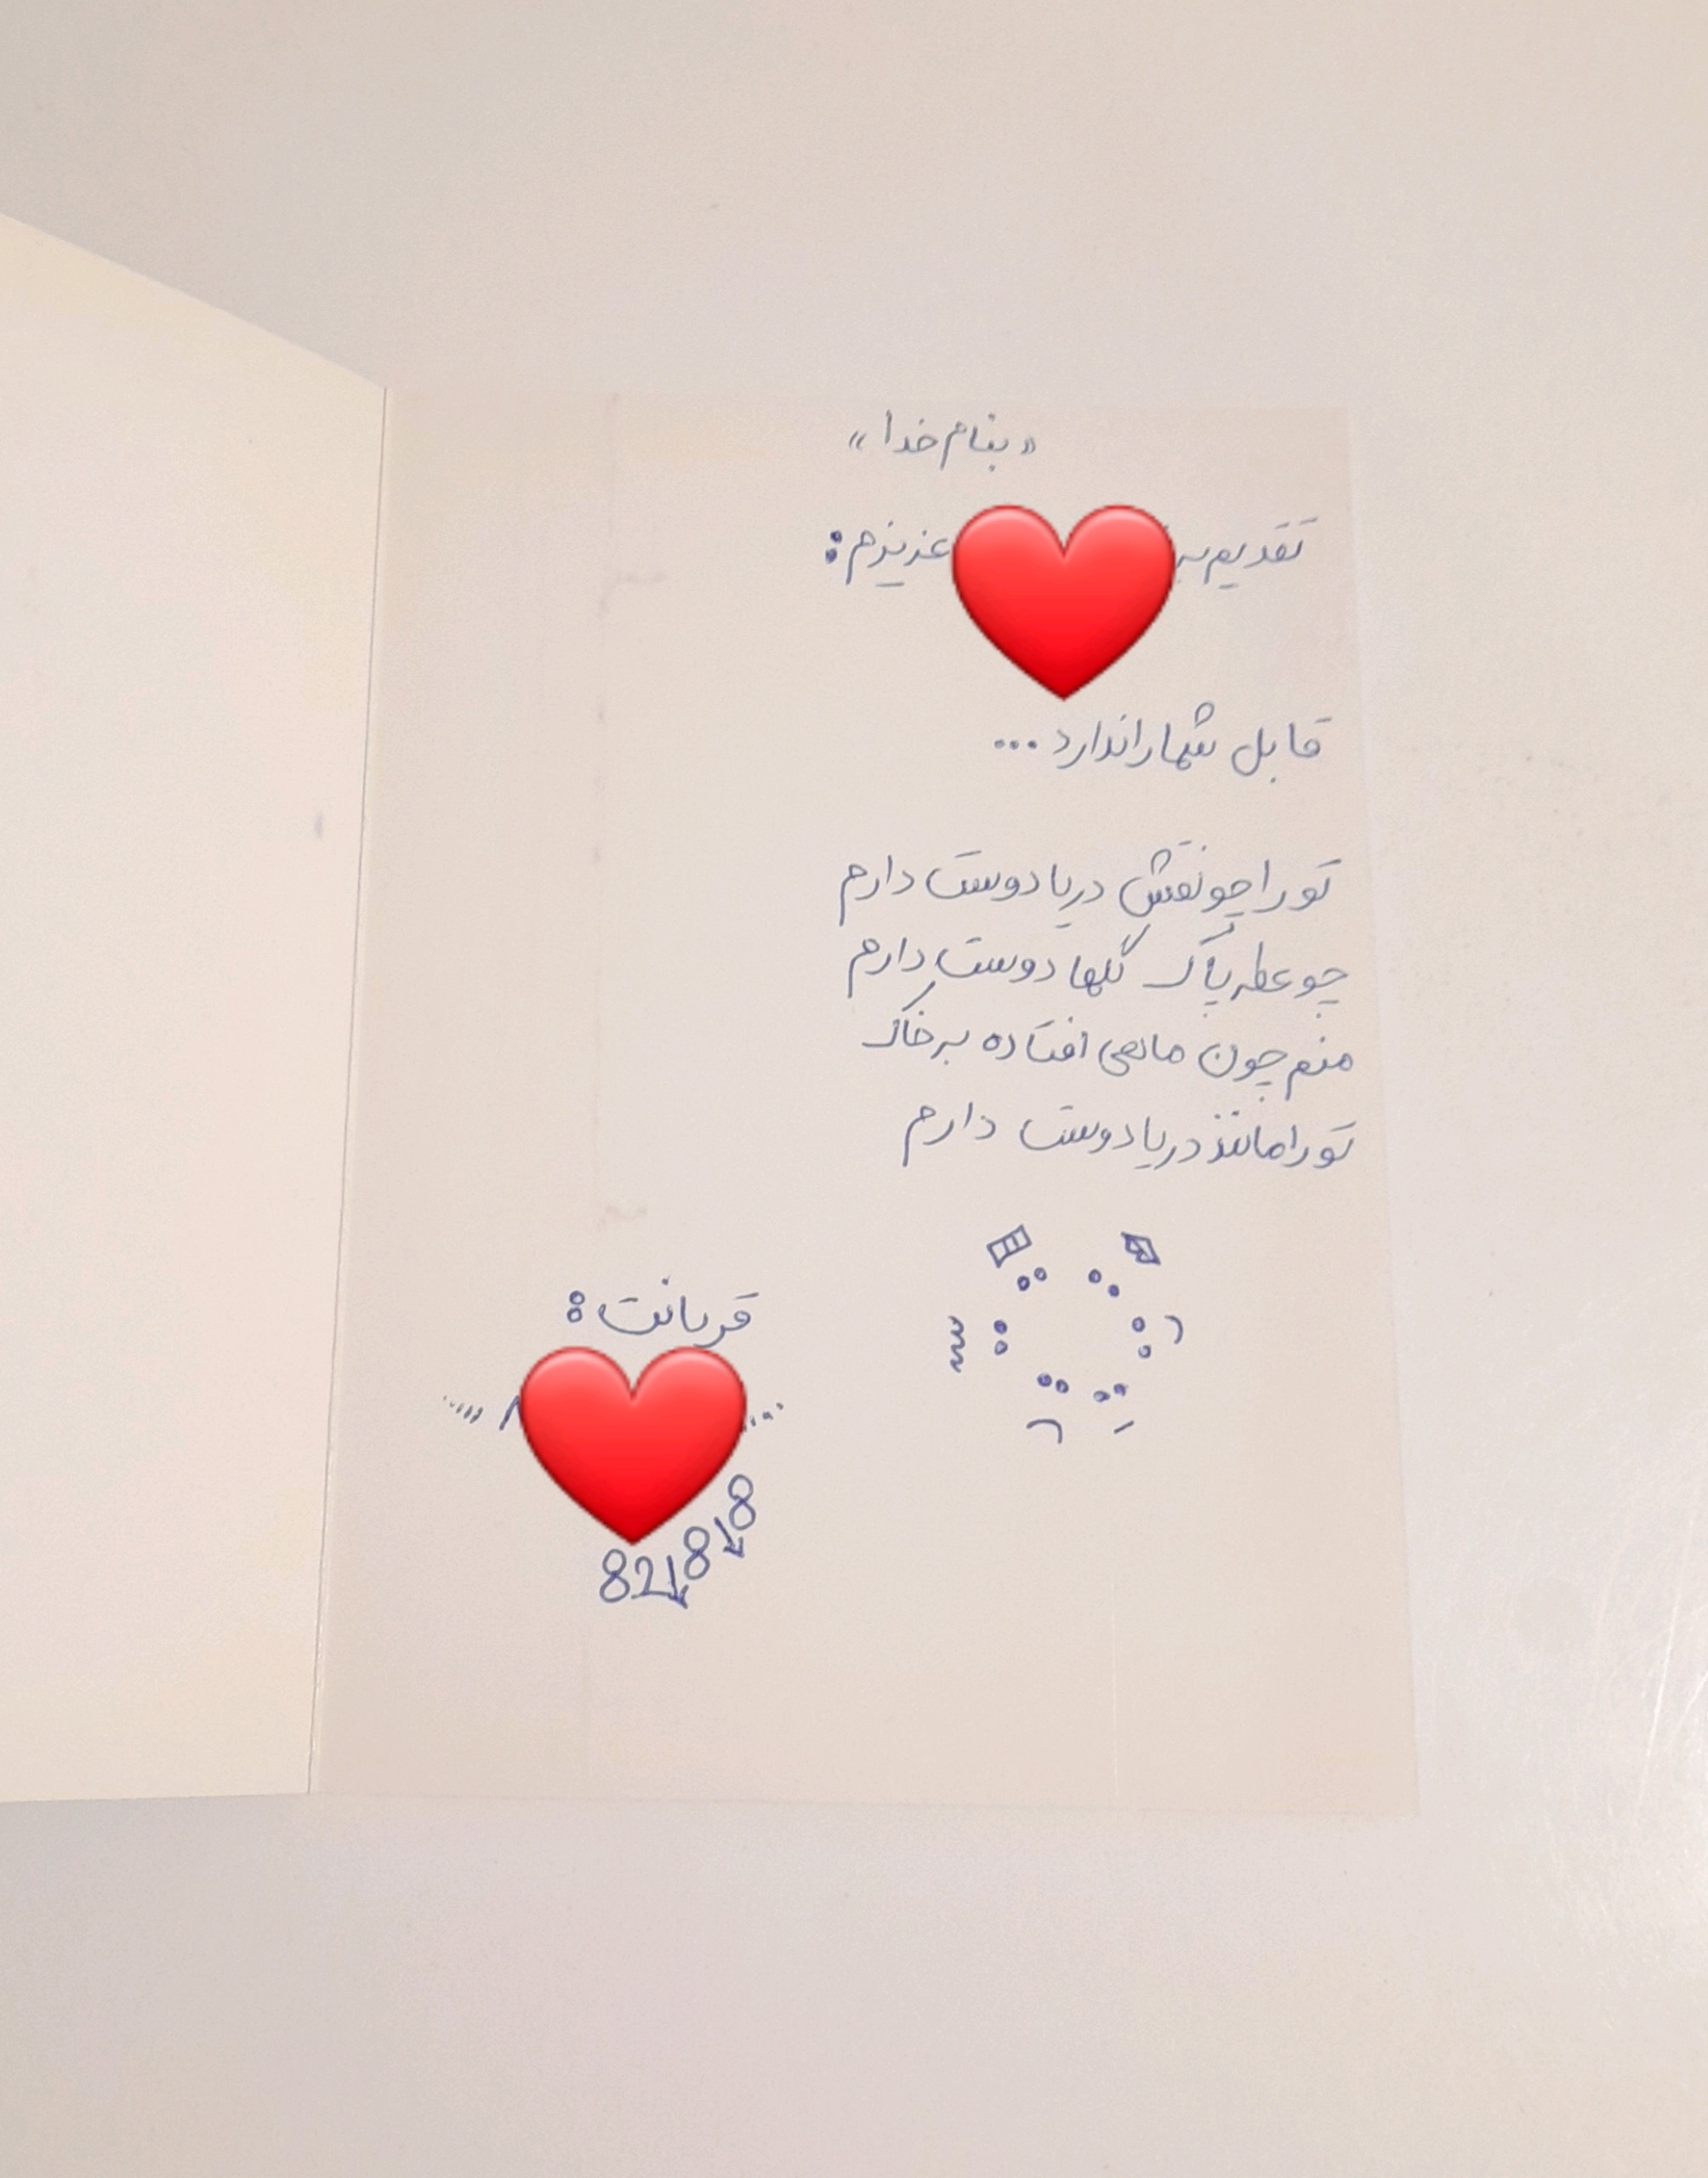 «بنام خدا»
تقدیم به عزیزم:
قابل شما را ندارد...
تو را چو نقش دریا دوست دارم
چو عطر پاک گلها دوست دارم
منم چون ماهی افتاده بر خاک
تو را مانند دریا دوست دارم
قربانت:
82/8/8